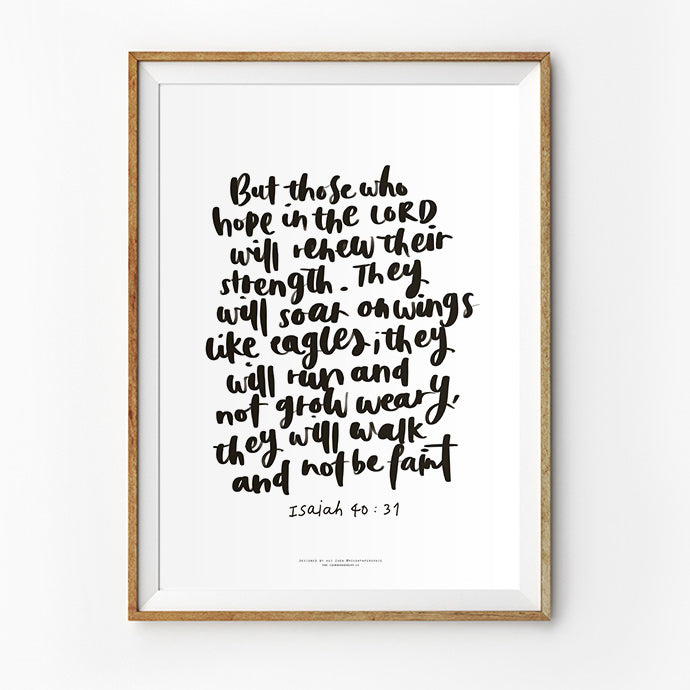 But those who
hope in the LORD
will renew their
strength. They
will soar on wings
like eagles; they
will run and
not grow weary,
they will walk
and not be faint
Isaiah 40:31
DESIGNED BY